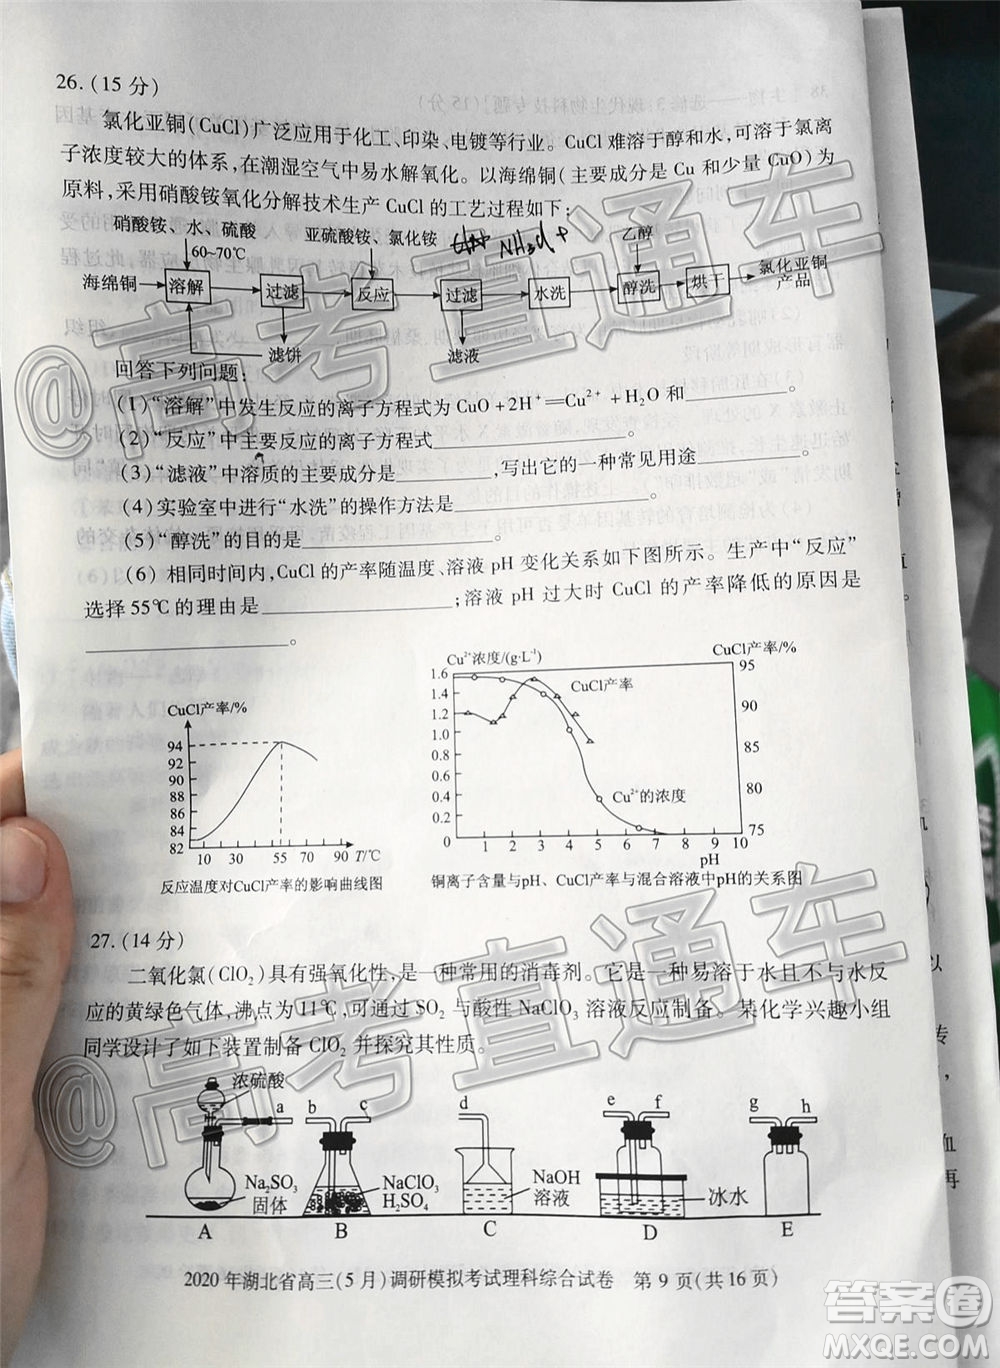 26.(15 分)
氯化亚铜(CuCl)广泛应用于化工、印染、电镀等行业。CuCl 难溶于醇和水,可溶于氯离
子浓度较大的体系,在潮湿空气中易水解氧化。以海绵铜(主要成分是 Cu 和少量 CuO)为
原料,采用硝酸铵氧化分解技术生产 CuCl 的工艺过程如下:
硝酸铵、水、硫酸 亚硫酸铵、氯化铵 乙醇
60~70℃
海绵铜 溶解 过滤 反应 过滤 水洗 醇洗 烘干 氯化亚铜
产品
滤饼 滤液
回答下列问题:
(1)“溶解”中发生反应的离子方程式为 CuO+2H⁺=Cu²⁺+H₂O 和 。
(2)“反应”中主要反应的离子方程式 。
(3)“滤液”中溶质的主要成分是 ,写出它的一种常见用途 。
(4)实验室中进行“水洗”的操作方法是 。
(5)“醇洗”的目的是 。
(6)相同时间内,CuCl 的产率随温度、溶液 pH 变化关系如下图所示。生产中“反应”
选择 55℃的理由是 ;溶液 pH 过大时 CuCl 的产率降低的原因是
。
CuCl产率/%
94
92
90
88
86
84
82
10 30 55 70 90 T/℃
反应温度对CuCl产率的影响曲线图
Cu²⁺浓度/(g·L⁻¹) CuCl产率/%
1.6
1.4
1.2
1.0
0.8
0.6
0.4
0.2
0
CuCl产率
Cu²⁺的浓度
95
90
85
80
75
1 2 3 4 5 6 7 8 9 10
pH
铜离子含量与pH、CuCl产率与混合溶液中pH的关系图
27.(14 分)
二氧化氯(ClO₂)具有强氧化性,是一种常用的消毒剂。它是一种易溶于水且不与水反
应的黄绿色气体,沸点为11℃,可通过 SO₂ 与酸性 NaClO₃ 溶液反应制备。某化学兴趣小组
同学设计了如下装置制备 ClO₂ 并探究其性质。
浓硫酸
a b c d e f g h
Na₂SO₃
固体
NaClO₃
H₂SO₄
NaOH
溶液
冰水
A B C D E
2020 年湖北省高三(5 月)调研模拟考试理科综合试卷 第 9 页(共 16 页)
@高考直通车
@高考直通车
答案圈
MXQE.COM